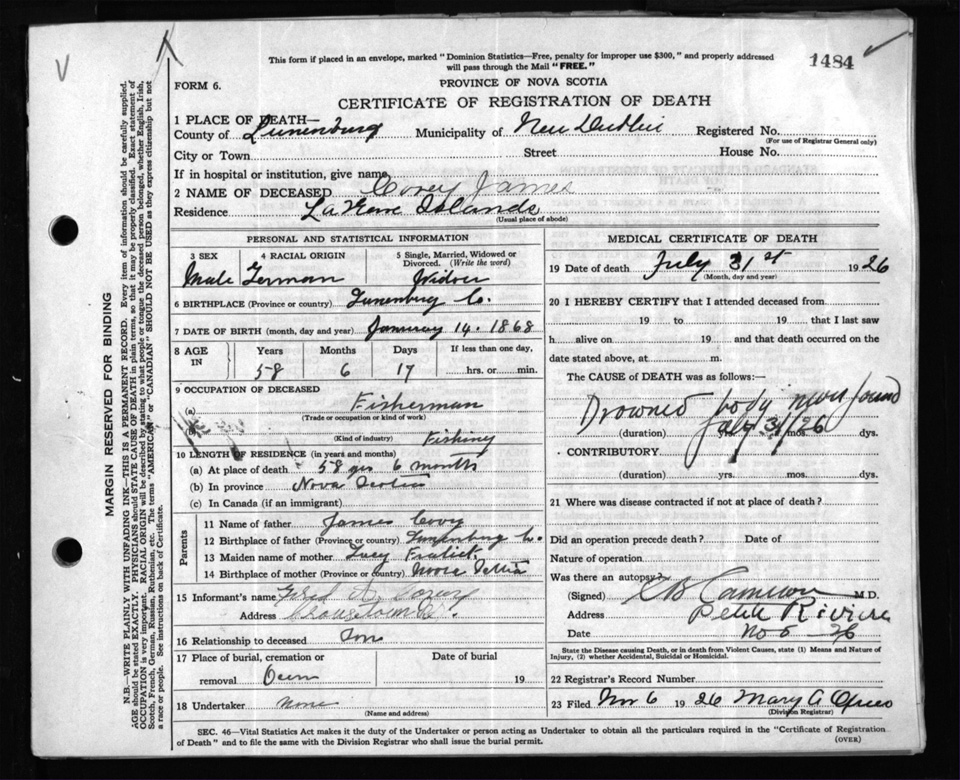 This form if placed in an envelope, marked "Dominion Statistics—Free, penalty for improper use $300," and properly addressed
will pass through the Mail "FREE."
1484
FORM 6.
PROVINCE OF NOVA SCOTIA
CERTIFICATE OF REGISTRATION OF DEATH
1 PLACE OF DEATH—
County of Lunenburg Municipality of New Dublin Registered No.
(For use of Registrar General only)
City or Town Street House No.
If in hospital or institution, give name
2 NAME OF DECEASED Covey James
Residence LaHave Islands
(Usual place of abode)
PERSONAL AND STATISTICAL INFORMATION
3 SEX 4 RACIAL ORIGIN 5 Single, Married, Widowed or
Divorced. (Write the word)
Male German
6 BIRTHPLACE (Province or country) Lunenburg Co.
7 DATE OF BIRTH (month, day and year) January 14. 1868
8 AGE IN Years Months Days If less than one day,
58 6 17 hrs. or min.
9 OCCUPATION OF DECEASED
(a) Fisherman
(Trade or occupation or kind of work)
(b) Fishing
(Kind of industry)
10 LENGTH OF RESIDENCE (in years and months)
(a) At place of death 58 yrs 6 months
(b) In province Nova Scotia
(c) In Canada (if an immigrant)
Parents
11 Name of father James Covey
12 Birthplace of father (Province or country) Lunenburg Co.
13 Maiden name of mother Lucy
14 Birthplace of mother (Province or country) Nova Scotia
15 Informant's name
Address
16 Relationship to deceased Son
17 Place of burial, cremation or Date of burial
removal 19
18 Undertaker None
(Name and address)
MEDICAL CERTIFICATE OF DEATH
19 Date of death July 31st 1926
(Month, day and year)
20 I HEREBY CERTIFY that I attended deceased from
19 to 19 that I last saw
h alive on 19 and that death occurred on the
date stated above, at m.
The CAUSE of DEATH was as follows:—
Drowned body never found
(duration) yrs. mos. dys.
July 31/26
CONTRIBUTORY
(duration) yrs. mos. dys.
21 Where was disease contracted if not at place of death?
Did an operation precede death? Date of
Nature of operation
Was there an autopsy?
(Signed) Cameron M D.
Address Petite Riviere
Date No 5 - 26
State the Disease causing Death, or in death from Violent Causes, state (1) Means and Nature of
Injury, (2) whether Accidental, Suicidal or Homicidal.
22 Registrar's Record Number
23 Filed Nov 6 1926 Mary
(Division Registrar)
SEC. 46—Vital Statistics Act makes it the duty of the Undertaker or person acting as Undertaker to obtain all the particulars required in the "Certificate of Registration
of Death" and to file the same with the Division Registrar who shall issue the burial permit.
(OVER)
MARGIN RESERVED FOR BINDING
N.B.—WRITE PLAINLY WITH UNFADING INK—THIS IS A PERMANENT RECORD. Every item of information should be carefully supplied.
AGE should be stated EXACTLY. PHYSICIANS should STATE CAUSE OF DEATH in plain terms, so that it may be properly classified. Exact statement of
OCCUPATION is very important. RACIAL ORIGIN will be described by stating to what people or tongue the deceased person belonged, whether English, Irish,
Scotch, French, German, Russian, Ruthenian, etc. The terms "AMERICAN" or "CANADIAN" SHOULD NOT BE USED as they express citizenship but not
a race or people. See instructions on back of Certificate.